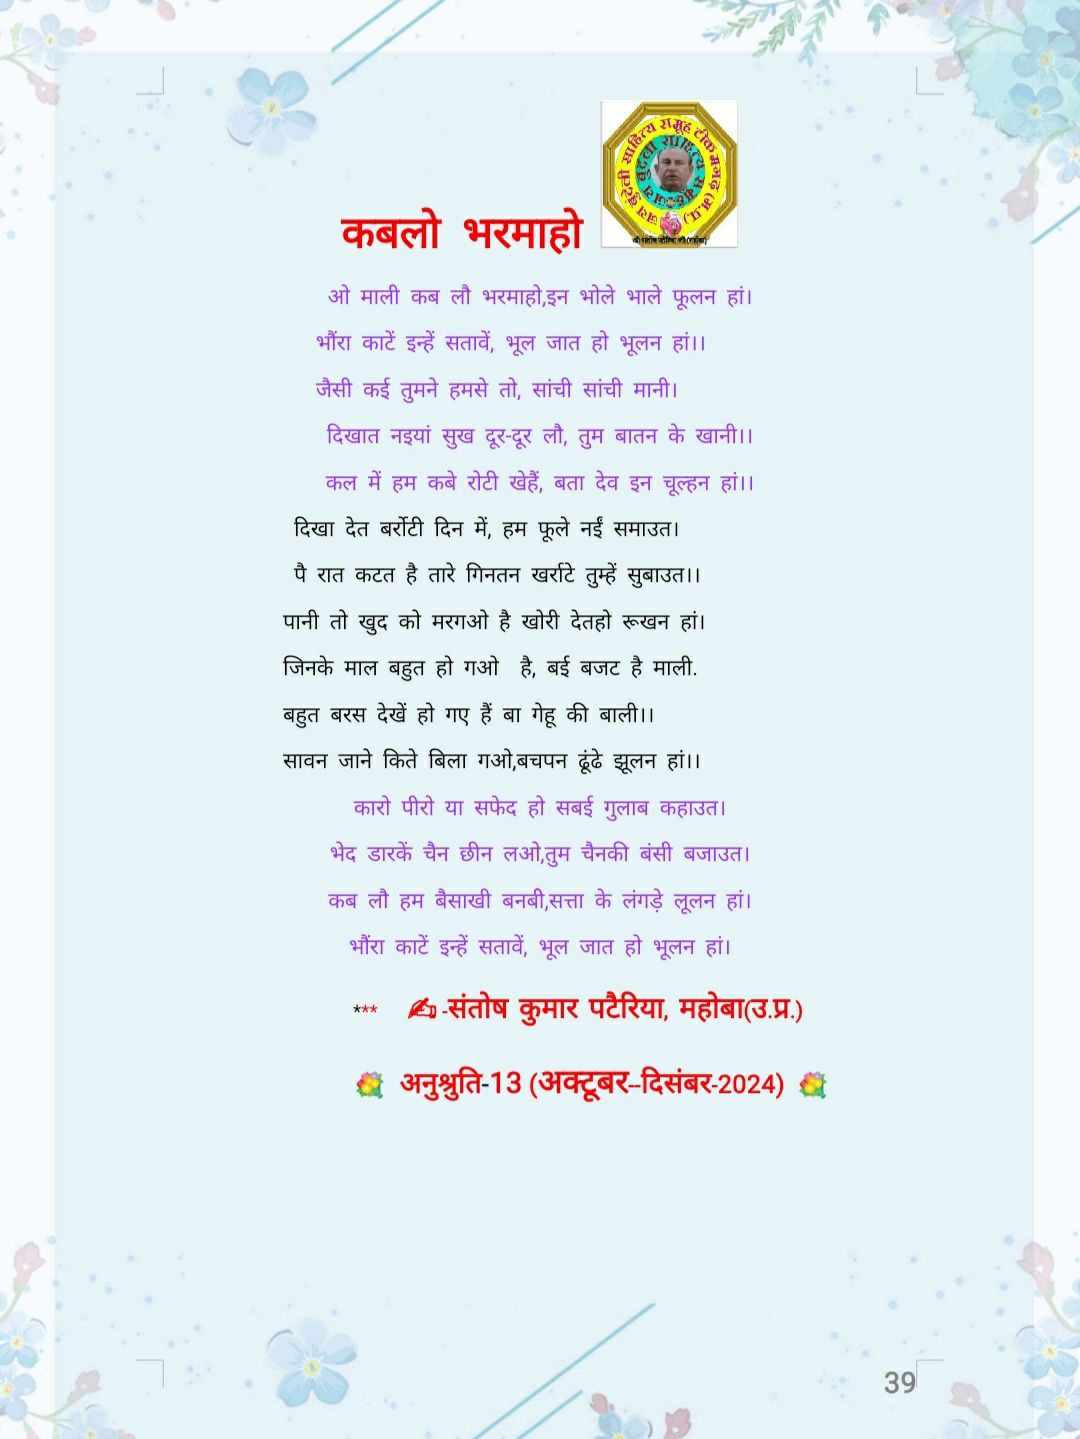 जय बुंदेली साहित्य समूह टीकमगढ़ (म.प्र.)
श्री संतोष पटैरिया जी (महोबा)
कबलो भरमाहो
ओ माली कब लौ भरमाहो,इन भोले भाले फूलन हां।
भौंरा काटें इन्हें सतावें, भूल जात हो भूलन हां।।
जैसी कई तुमने हमसे तो, सांची सांची मानी।
दिखात नइयां सुख दूर-दूर लौ, तुम बातन के खानी।।
कल में हम कबे रोटी खेहैं, बता देव इन चूल्हन हां।।
दिखा देत बर्रोटी दिन में, हम फूले नईं समाउत।
पै रात कटत है तारे गिनतन खर्राटे तुम्हें सुबाउत।।
पानी तो खुद को मरगओ है खोरी देतहो रूखन हां।
जिनके माल बहुत हो गओ है, बई बजट है माली.
बहुत बरस देखें हो गए हैं बा गेहू की बाली।।
सावन जाने किते बिला गओ,बचपन ढूंढे झूलन हां।।
कारो पीरो या सफेद हो सबई गुलाब कहाउत।
भेद डारकें चैन छीन लओ,तुम चैनकी बंसी बजाउत।
कब लौ हम बैसाखी बनबी,सत्ता के लंगड़े लूलन हां।
भौंरा काटें इन्हें सतावें, भूल जात हो भूलन हां।
*** ✍️ -संतोष कुमार पटैरिया, महोबा(उ.प्र.)
💐 अनुश्रुति-13 (अक्टूबर--दिसंबर-2024) 💐
39